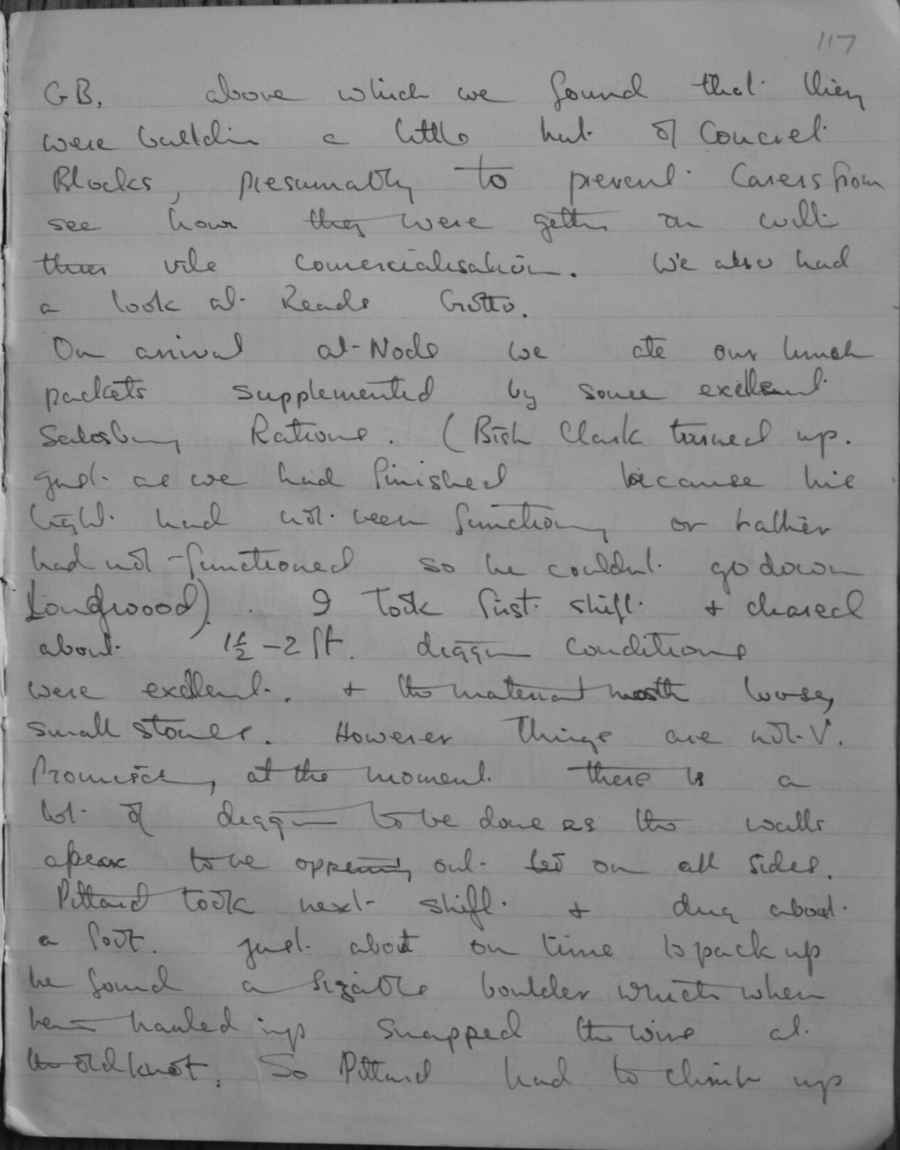 117
GB, above which we found that they
were buildin a little hut of Concret
Blocks, presumably to prevent Cavers from
see how they were gettin on with
their vile comercialisation. We also had
a look at Reads Grotto.
On arrival at Node we ate our lunch
packets supplemented by some excellent
Salesbury Rations. (Bish Clark turned up.
just as we had finished because his
light had not been functiong or rather
had not functioned so he couldn't go down
Longwood). I took first shift & cleared
about 1½ - 2 ft. diggin conditions
were excellent. & the material mostly loose,
small stones. However things are not V.
Promisin, at the moment there is a
lot of diggin to be done as the walls
apear to be oppening out on all sides.
Pittard took next shift & dug about
a foot. just about on time to pack up
he found a sizable boulder which when
bein hauled up snapped the wire at
the old knot. So Pittard had to climb up